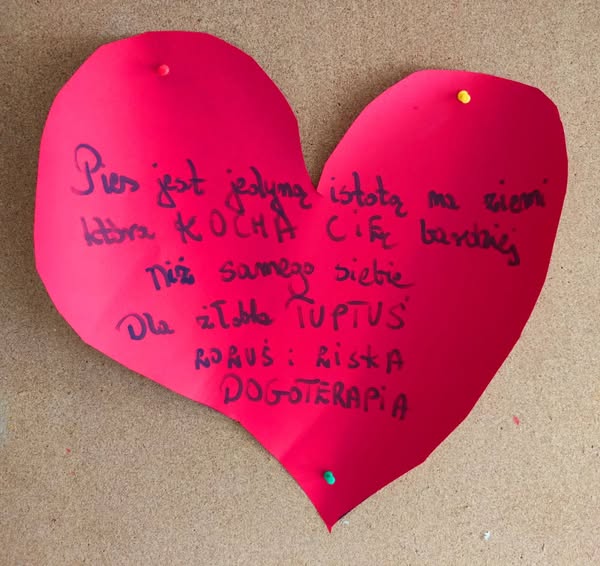 Pies jest jedyną istotą na ziemi
która KOCHA CiĘ bardziej
Niż samego siebie
Dla żłobka TUPTUŚ
i
DOGOTERAPiA